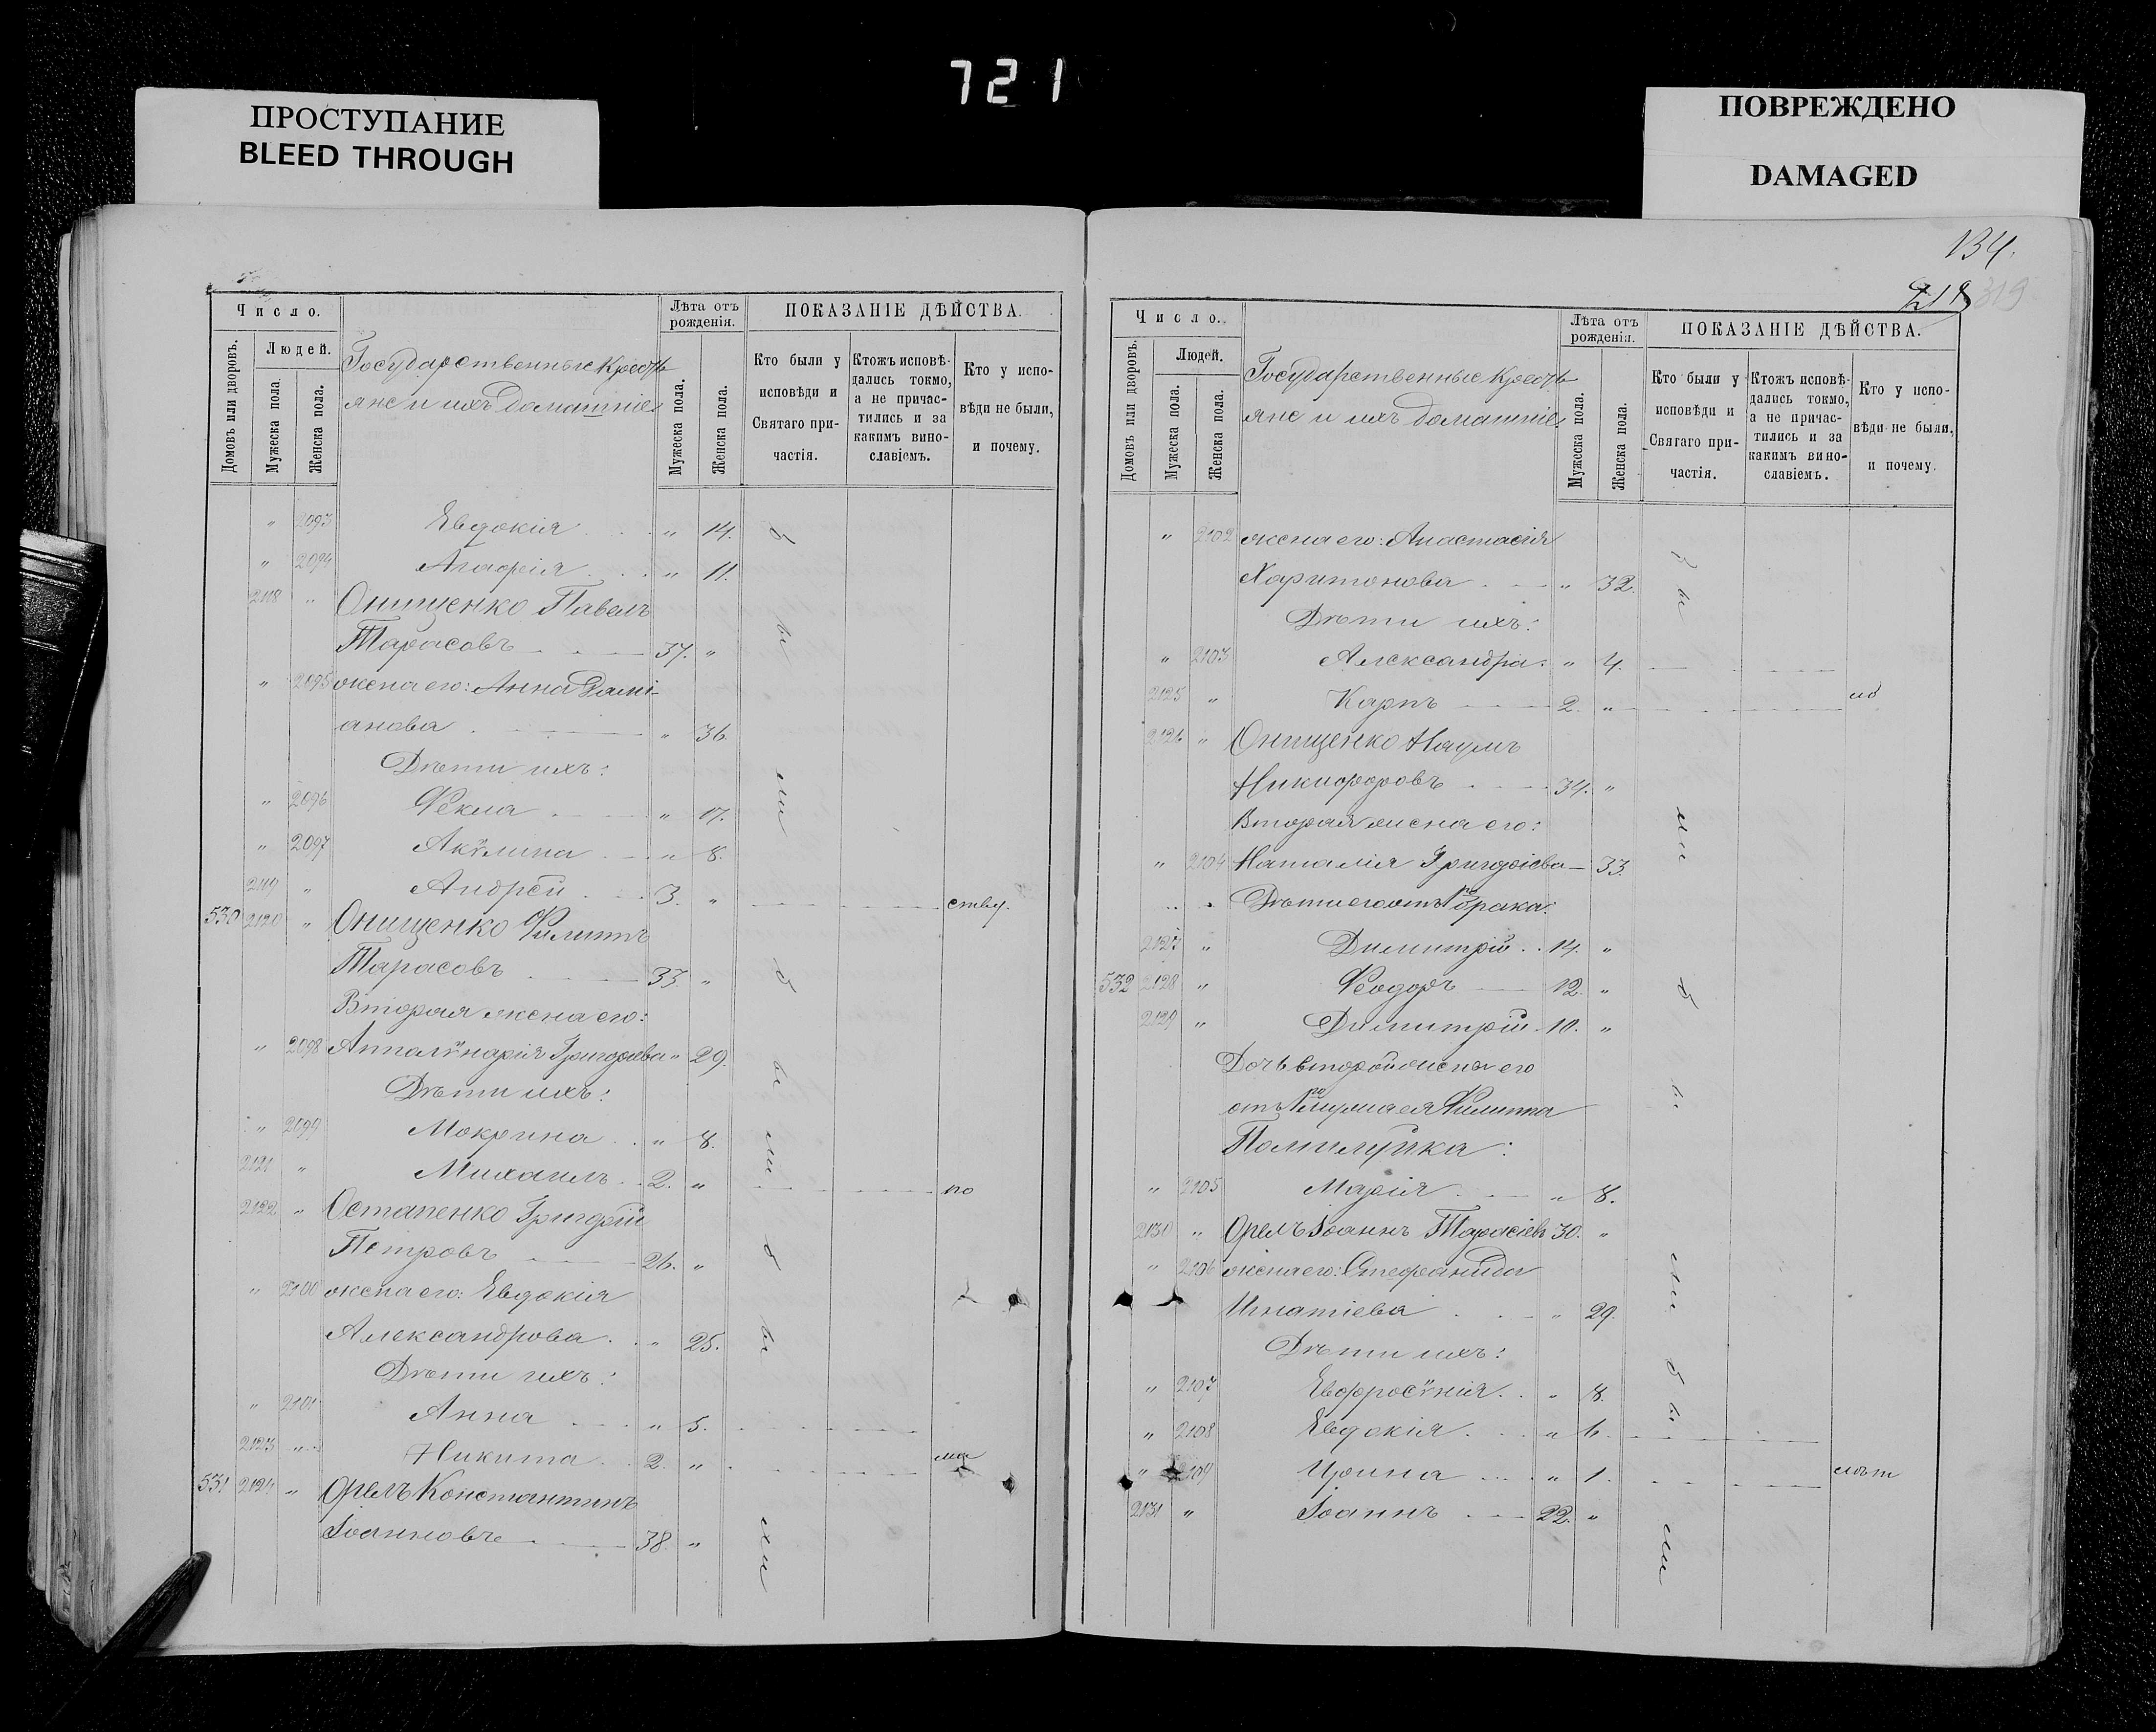 721
ПРОСТУПАНИЕ
BLEED THROUGH
ПОВРЕЖДЕНО
DAMAGED
Число.
Людей.
Домовъ или дворовъ.
Мужеска пола.
Женска пола.
Государственные крестьяне и ихъ домашніе
Лѣта отъ рожденія.
Мужеска пола.
Женска пола.
ПОКАЗАНІЕ ДѢЙСТВА.
Кто были у исповѣди и Святаго причастія.
Ктожъ исповѣдались токмо, а не причастились и за какимъ винославіемъ.
Кто у исповѣди не были, и почему.
" 2093 Евдокія " 14. б
" 2094 Агафія " 11.
2118 " Онищенко Павелъ
Тарасовъ 37. " ы
" 2095 жена его: Анна Дамі-
анова " 36.
Дѣти ихъ:
" 2096 Фекла " 17. ли
" 2097 Акѵлина " 8.
2119 " Андрей 3. " ству.
530 2120 " Онищенко Филиппъ
Тарасовъ 33. " б
Вторая жена его:
" 2098 Апполѵнарія Григоріева " 29. ы
Дѣти ихъ:
" 2099 Мокрина " 8. ли
2121 " Михаилъ 2. " по
2122 " Остапенко Григорій
Петровъ 26. " б
" 2100 жена его: Евдокія
Александрова " 25. ы
Дѣти ихъ:
" 2101 Анна " 5.
2123 " Никита 2. " ма
531 2124 " Орелъ Константинъ
Іоанновъ 38. " ли
134.
319
Число.
Людей.
Домовъ или дворовъ.
Мужеска пола.
Женска пола.
Государственные крестьяне и ихъ домашніе
Лѣта отъ рожденія.
Мужеска пола.
Женска пола.
ПОКАЗАНІЕ ДѢЙСТВА.
Кто были у исповѣди и Святаго причастія.
Ктожъ исповѣдались токмо, а не причастились и за какимъ винославіемъ.
Кто у исповѣди не были, и почему.
" 2102 жена его: Анастасія
Харитонова " 32. бы
Дѣти ихъ:
" 2103 Александра " 4.
2125 " Карпъ 2. "
2126 " Онищенко Наумъ
Никифоровъ 34. "
Вторая жена его: ли
" 2104 Наталія Григоріева 33.
Дѣти его отъ 1го брака:
2127 " Димитрій 14. "
532 2128 " Феодоръ 12. " б
2129 " Димитрій 10. "
Дочь второй жены его
отъ 1го мужа ея Филиппа ы
" 2105 Марія " 8.
2130 " Орелъ Іоаннъ Тарасіевъ 30. "
" 2106 жена его: Стефанида ли
Игнатіева " 29.
Дѣти ихъ:
" 2107 Евфросѵнія " 8. б
" 2108 Евдокія " 6. ы
" 2109 Ирина " 1. лѣт
2131 " Іоаннъ 22. " ли